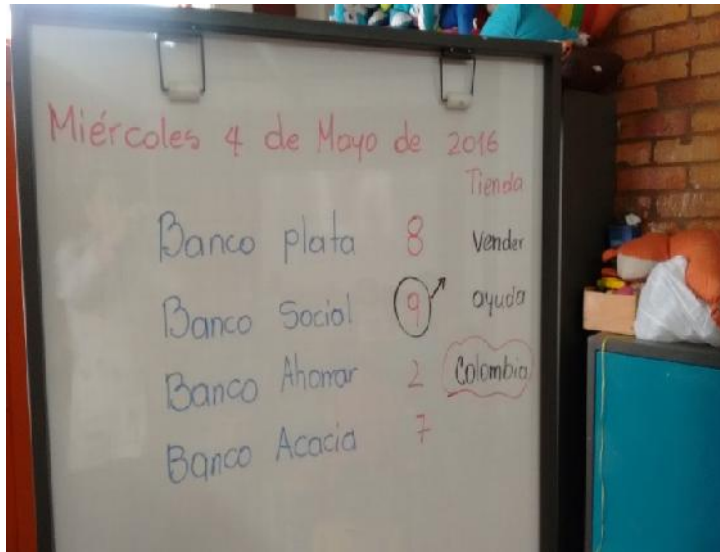 Miércoles 4 de Mayo de 2016
Tienda
Banco plata 8 Vender
Banco Social 9 ayuda
Banco Ahorrar 2 Colombia
Banco Acacia 7